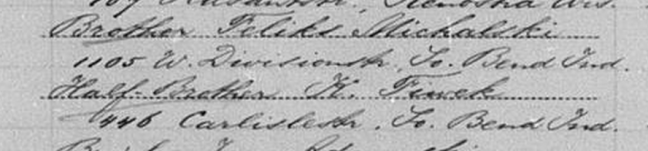 Kenosha Wis.
Brother Feliks Michalski
1105 W. Divisionstr, So. Bend Ind.
Half Brother K. Tiwek
446 Carlislestr. So. Bend Ind.